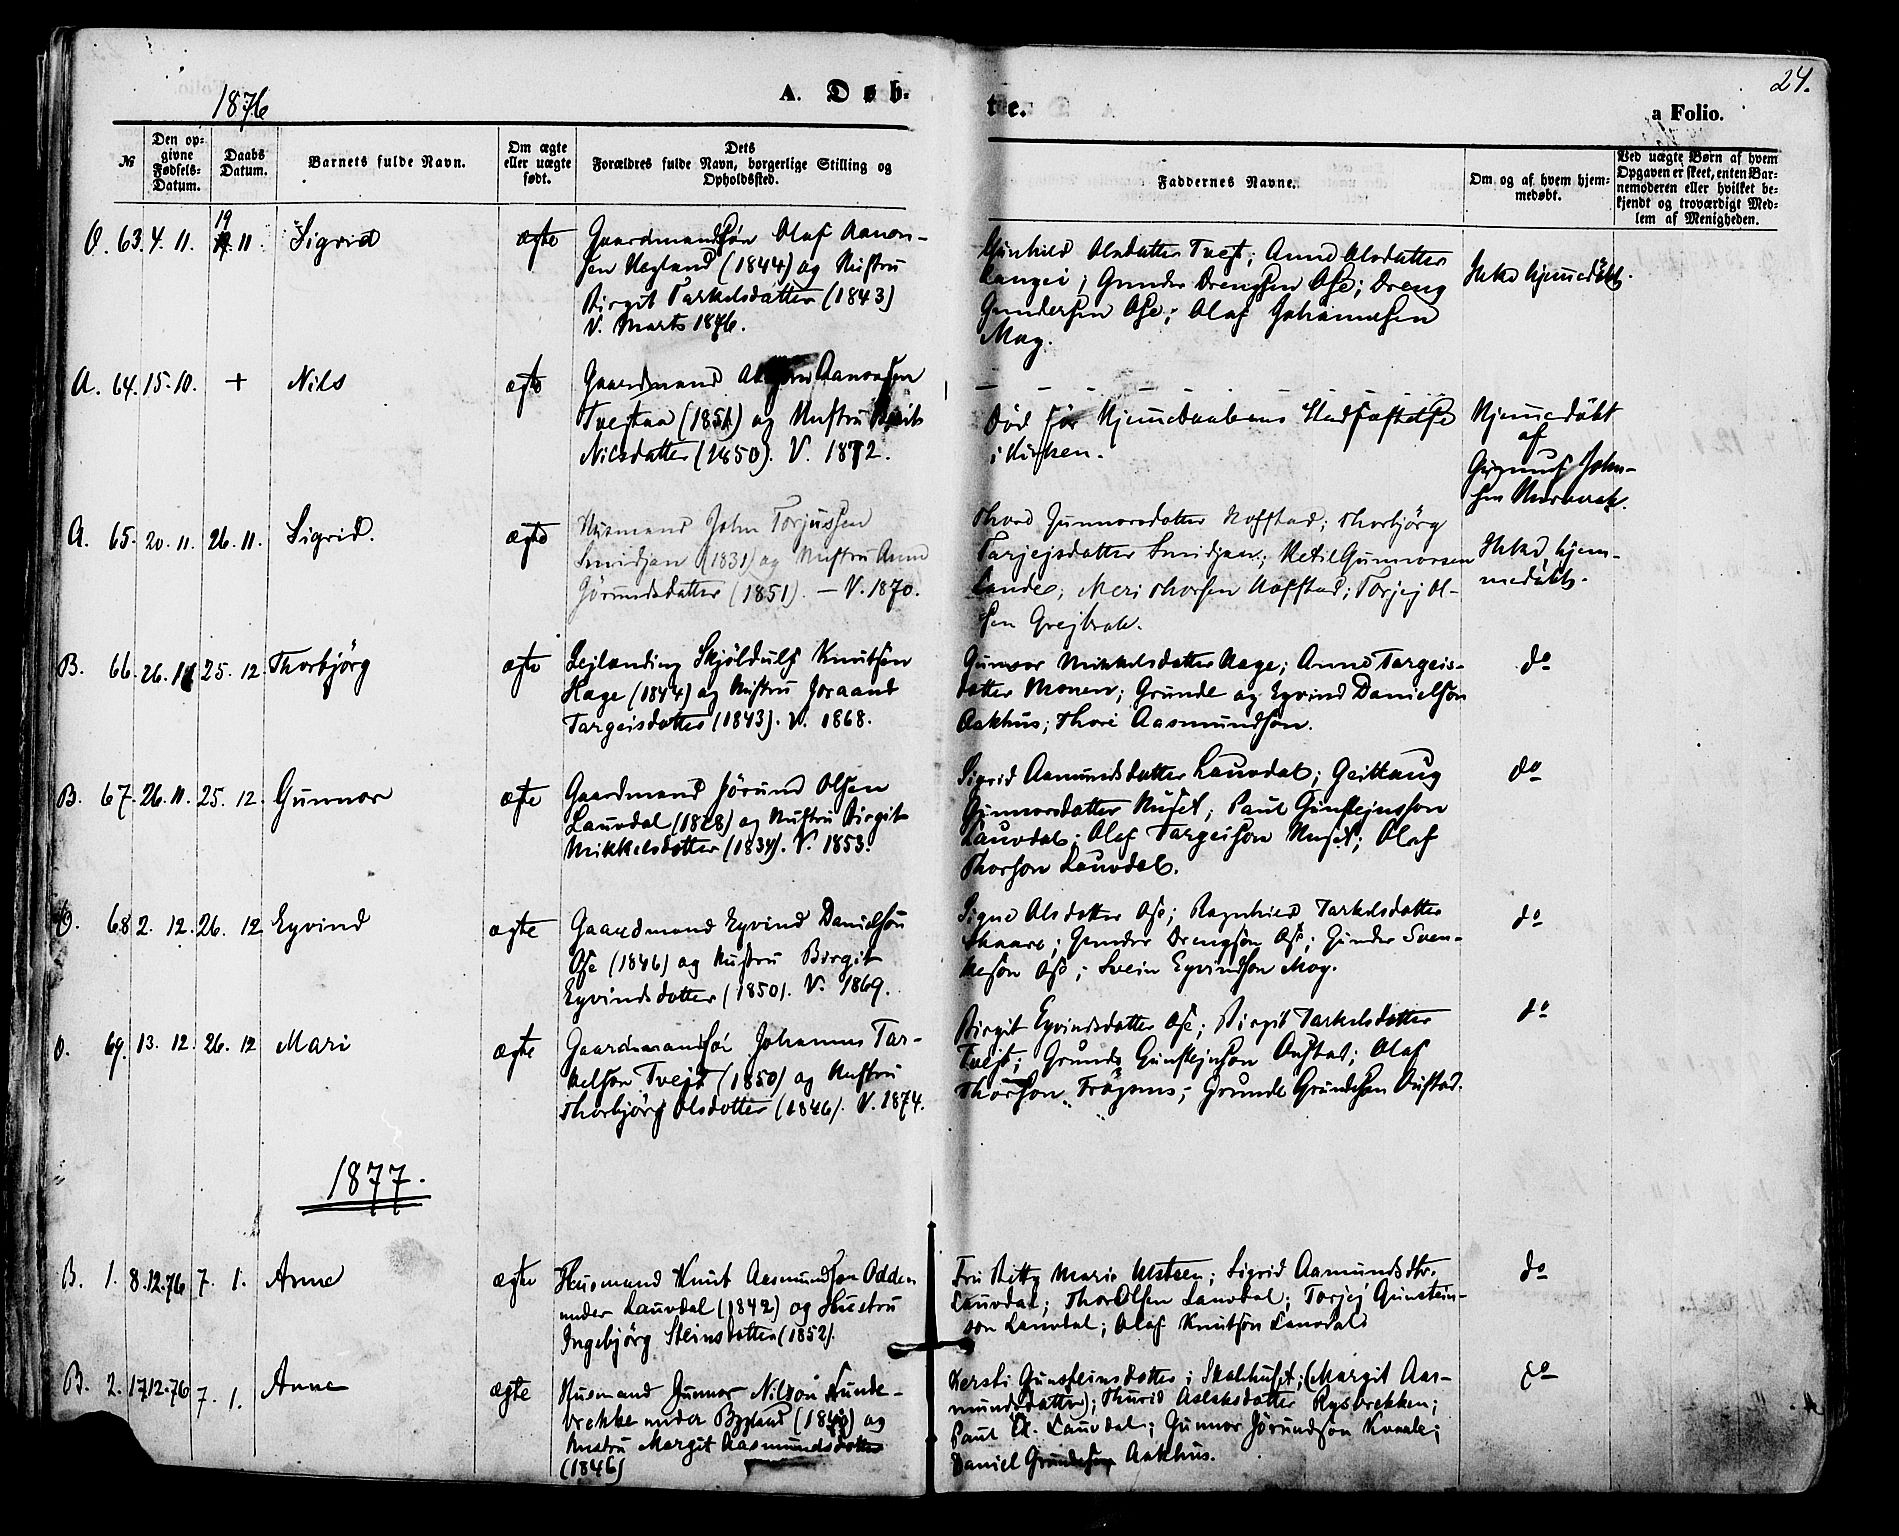 24.
1876
A. Døb-
te.
a Folio.
№
Den op-
givne
Fødsels-
Datum.
Daabs
Datum.
Barnets fulde Navn.
Om ægte
eller uægte
født.
Dets
Forældres fulde Navn, borgerlige Stilling og
Opholdssted.
Faddernes Navne.
Om og af hvem hjem-
medøbt.
Ved uægte Børn af hvem
Opgaven er skeet, enten Bar-
nemoderen eller hvilket be-
kjendt og troværdigt Med-
lem af Menigheden.
O. 63. 4. 11. 19 11. Sigrid ægte
Gaardmandssøn Olaf Aanon-
sen (1844) og Hustru
Birgit Tarkelsdatter (1843)
V. Marts 1876.
Gunhild Olsdatter Tvejt; Anne Olsdatter
Langei; Gunder Drengsen Ose; Dreng
Gundersen Ose; Olaf Johannesen
Moy.
Ikke hjemedøbt.
A. 64. 15. 10. + Nils ægte
Gaardmand Aanonsen
Tvejtaa (1851) og Hustru
Nilsdatter (1850). V. 1872.
Død før Hjemedaabens Stadfæstelse
i Kirken.
Hjemedøbt
af
John-
sen
A. 65. 20. 11. 26. 11. Sigrid. ægte
Husmand John Torjussen
Smidjan (1831) og Hustru Anne
Jørundsdatter (1851). – V. 1870.
Thore Gunnorsdatter Rofstad; Thorbjörg
Tarjejsdatter Smidjan; Ketil Gunnorsen
Lande; Thorsen Rofstad; Torjej Ol-
sen
Ikke hjem-
medøbt.
B. 66. 26. 11 25. 12. Thorbjörg ægte
Lejlænding Skjöldulf Knutsen
Hage (1844) og Hustru Joraand
Targeisdatter (1843). V. 1868.
Gunvor Mikkelsdatter Hage; Anne Targeis-
datter Monen; Grunde og Eyvind Danielsøn
Aakhus; Thore Aasmundsøn.
do
B. 67. 26. 11. 25. 12. Gunnor ægte
Gaardmand Jörund Olsen
Lauvdal (1828) og Hustru Birgit
Mikkelsdatter (1834). V. 1853.
Sigrid Aamundsdatter Lauvdal; Geittaug
Gunnorsdatter; Paul Gunstejnsson
Lauvdal; Olaf Targeisøn; Olaf
Thorsøn Lauvdal.
do
O. 68. 2. 12. 26. 12 Eyvind ægte
Gaardmand Eyvind Danielsøn
Ose (1846) og Hustru Birgit
Eyvindsdatter (1850). V. 1869.
Signe Olsdatter Ose; Ragnhild Tarkelsdatter
Skaare; Gunder Drengsøn Ose; Gunder Sven-
kesøn Ose; Svein Eyvindsøn Moy.
do
O. 69. 13. 12. 26. 12 Mari ægte
Gaardmandssøn Johannes Tar-
kelsøn Tvejt (1850) og Hustru
Thorbjörg Olsdatter (1846). V. 1874.
Birgit Eyvindsdatter Ose; Birgit Tarkelsdatter
Tvejt; Grunde Gunstejnsøn Austad; Olaf
Thorsøn Frøysnes; Grunde Grundesen Austad.
do
1877.
B. 1. 8. 12. 76 7. 1. Anne ægte
Husmand Knut Aasmundsøn Odden
under Lauvdal (1842) og Hustru
Ingebjörg Steinsdatter (1852).
Fru Betty Marie; Sigrid Aamundsdtr.
Lauvdal; Thor Olsen Lauvdal; Torjej Gunstein-
søn Lauvdal; Olaf Knutsøn Lauvdal
do
B. 2. 17. 12. 76 7. 1. Anne ægte
Husmand Gunnor Nilsøn Lunde-
brekke under Bygland og
Hustru Margit Aasmundsdatter
(1846)
Kersti Gunsteinsdatter; (Margit Aas-
mundsdatter); Thurid Aslaksdatter Rysbrekken;
Paul Lauvdal; Gunnor Jörundsøn Kvaale;
Daniel Grundesøn Aakhus.
do